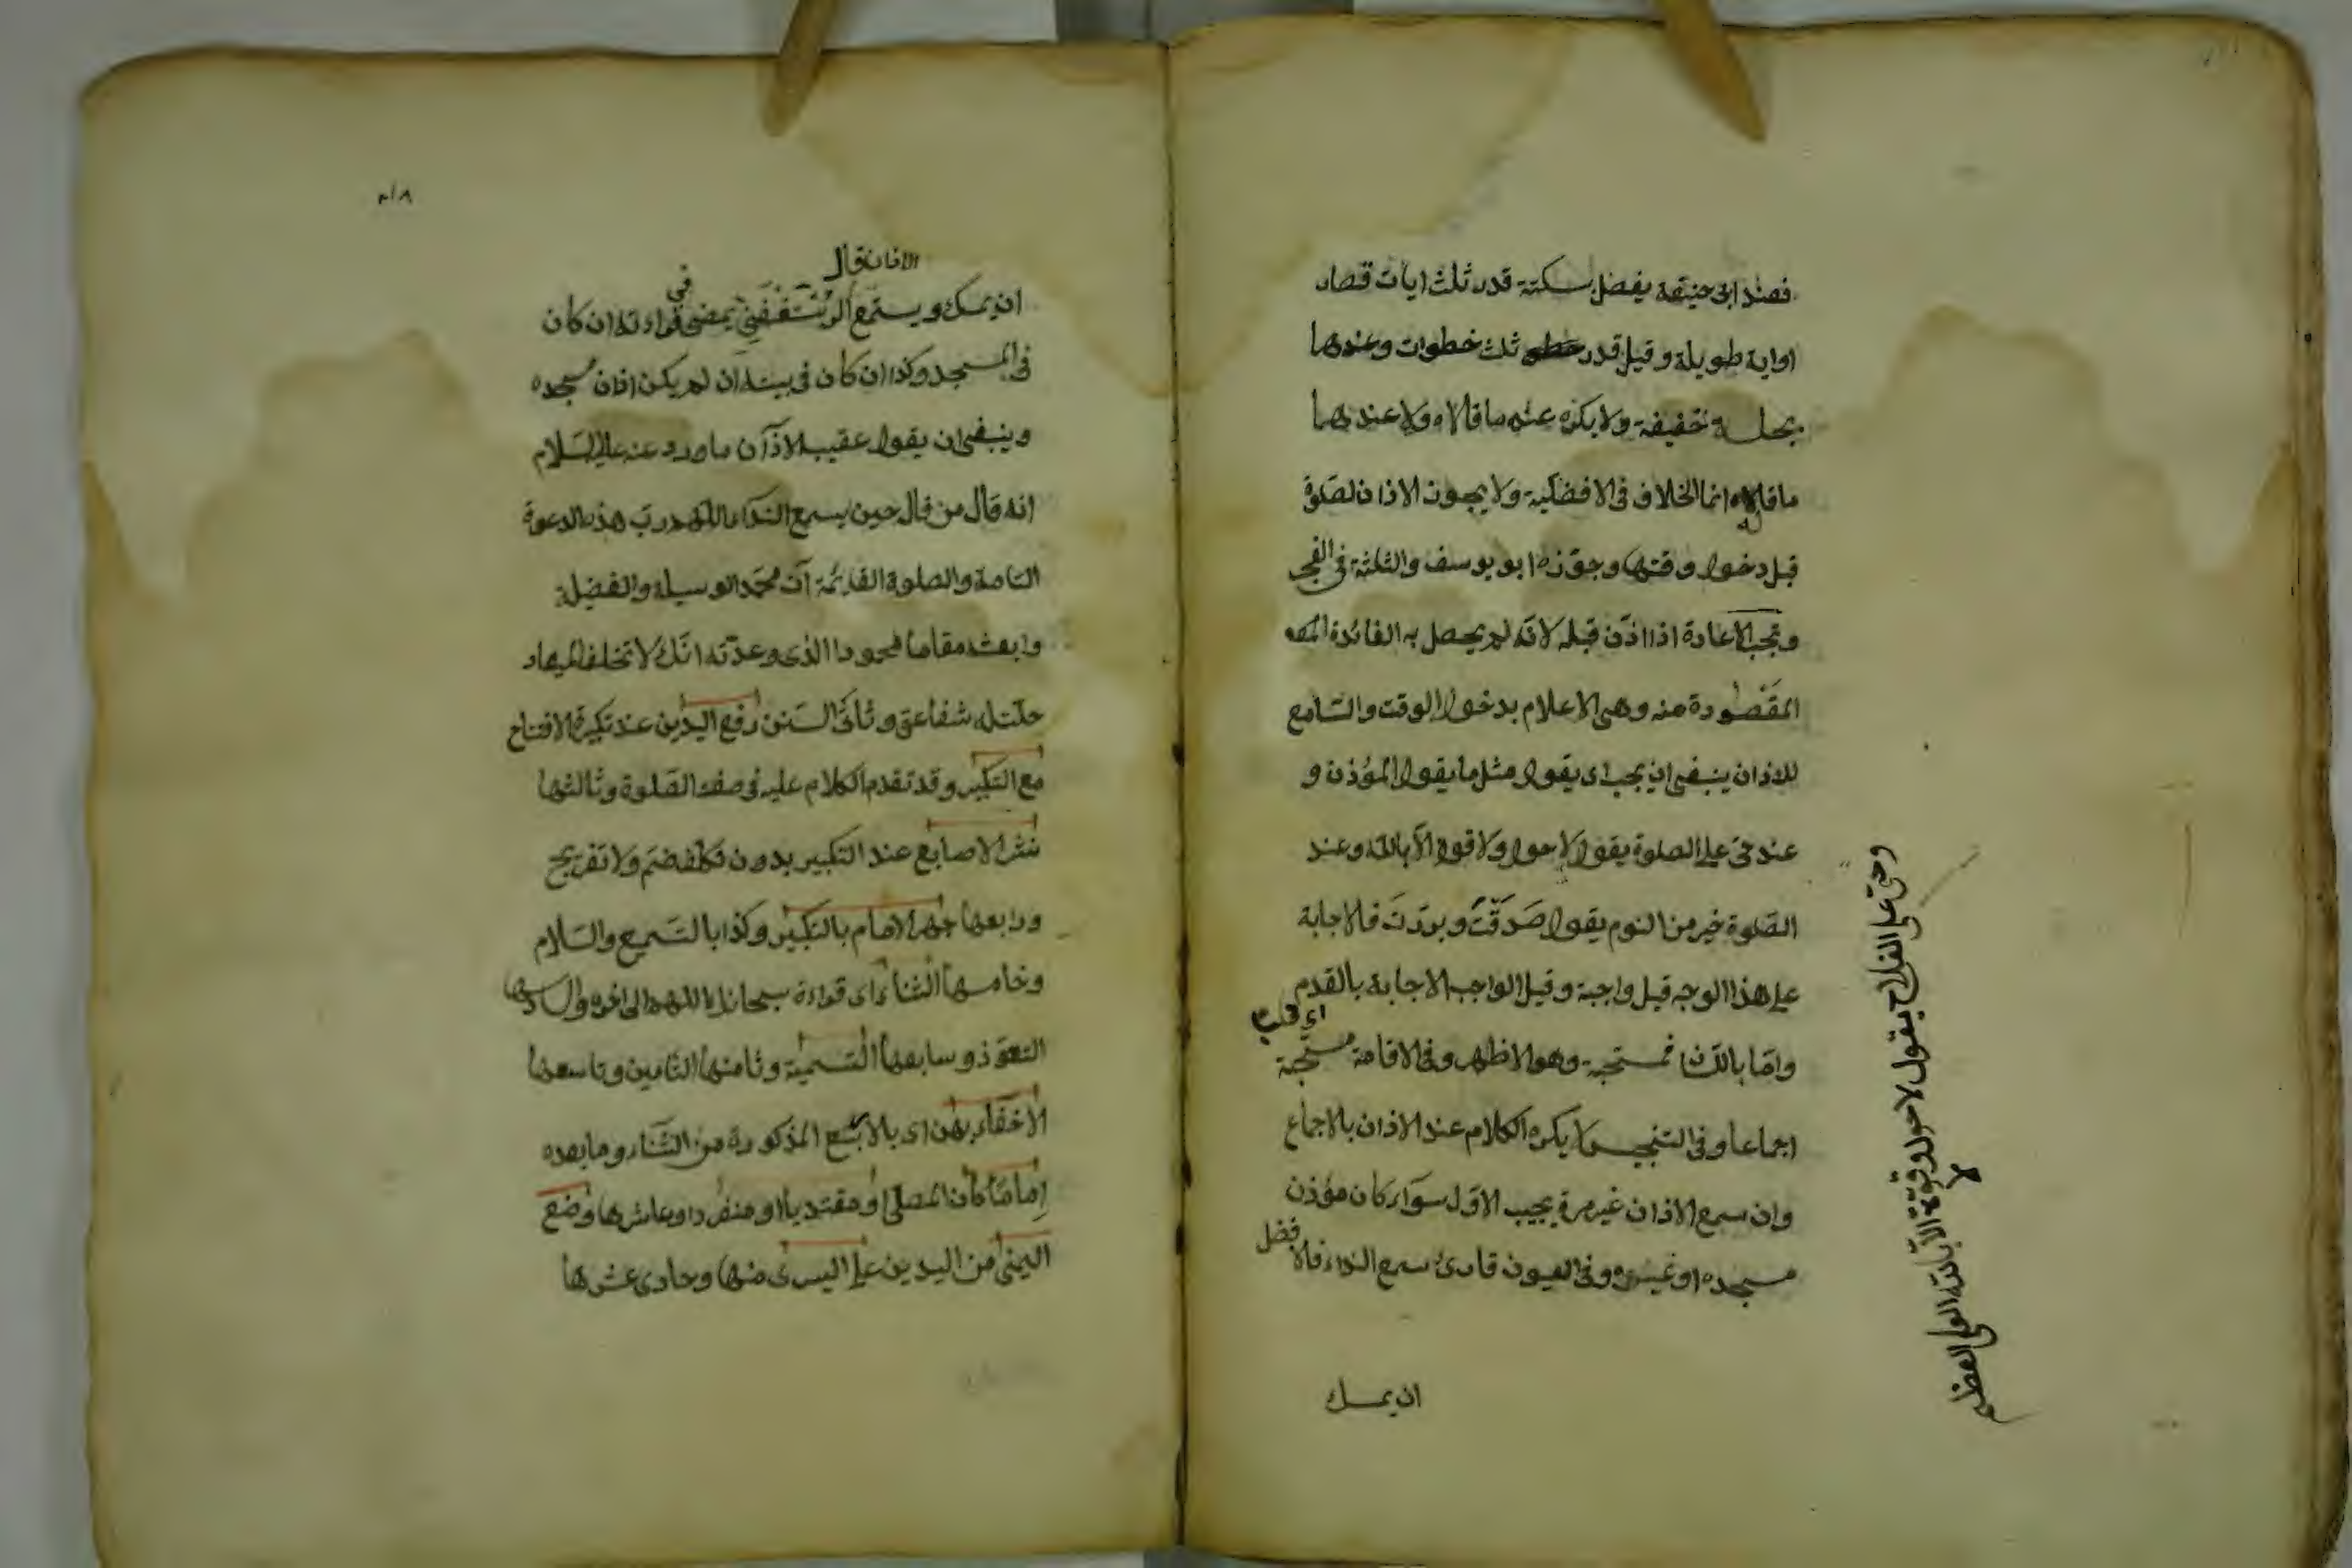 فعند ابى حنيفة يفضل بسكتة قدر ثلث ايات قصار
او اية طويلة وقيل قدر ثلث خطوات وعندهما
بجلسة خفيفة ولا يكره عنده ما قالاه ولا عندهما
ما قاله انما الخلاف فى الافضلية ولا يجوز الاذان لصلوة
قبل دخول وقتها وجوّزه ابو يوسف والثلثة فى الفجر
وتجب الاعادة اذا اذّن قبله لانّه لم يحصل به الفائدة
المقصودة منه وهى الاعلام بدخول الوقت والسّامع
للاذان ينبغى ان يجب اى يقول مثل ما يقول المؤذن و
عند حىّ على الصلوة يقول لا حول ولا قوة الّا بالله وعند
الصّلوة خير من النوم يقول صَدَقْتَ وبررتَ فالاجابة
على هذا الوجه قيل واجبة وقيل الواجب الاجابة بالقدم
وامّا باللّسان فمستحبة وهو الاظهر وفى الاقامة مستحبّة
اجماعا وفى التجنيس لا يكره الكلام عند الاذان بالاجماع
وان سمع الاذان غير مرة يجيب الاول سواء كان مؤذن
مسجده او غيره وفى العيون قارئ سمع النداء فالافضل
ان يمسك
وحىّ على الفلاح يقول لا حول ولا قوّة الّا بالله العلى العظيم
٢١٨
ان يمسك ويستمع يمضى فى قراءته ان كان
فى المسجد وكذا ان كان فى بيته ان لم يكن اذان مسجده
وينبغى ان يقول عقيب الاذان ما ورد عنه عليه السّلام
انه قال من قال حين يسمع النداء اللّهم ربّ هذه الدعوة
التامة والصلوة القائمة آت محمّد الوسيلة والفضيلة
وابعثه مقاما محمودا الذى وعدّته انّك لا تخلف الميعاد
حلّت له شفاعتى وثانى السّنن رفع اليدين عند تكبيرة الافتتاح
مع التكبير وقد تقدم الكلام عليه فى صفة الصّلوة وثالثها
نشر الاصابع عند التكبير بدون تكلّف ضمّ ولا تفريج
ورابعها جهر الامام بالتكبير وكذا بالتّسميع والسّلام
وخامسها الثناء اى قراءة سبحانك اللهم الى اخره والسادسها
التعوّذ وسابعها التّسمية وثامنها التامين وتاسعها
الاخفاء بهن اى بالاربع المذكورة من الثّناء وما بعده
اماما كان المصلى او مقتديا او منفردا وعاشرها وضع
اليمنى من اليدين على اليسرى منها وحادى عشرها